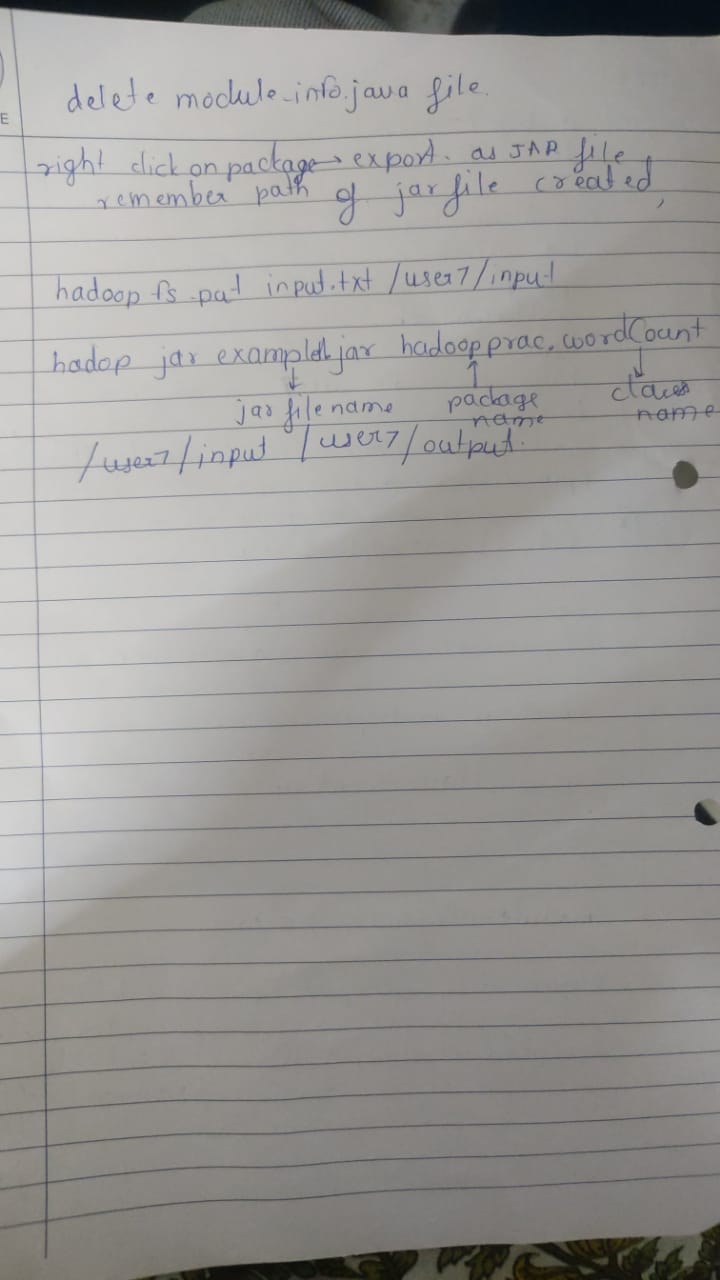 E
delete module-info.java file.
right click on package → export. as JAR file
remember path of jar file created,
hadoop fs -put input.txt /user7/input
hadop jar example1.jar hadoopprac.wordCount
↓ ↑ ↓
jar filename package name class name
/user7/input /user7/output.